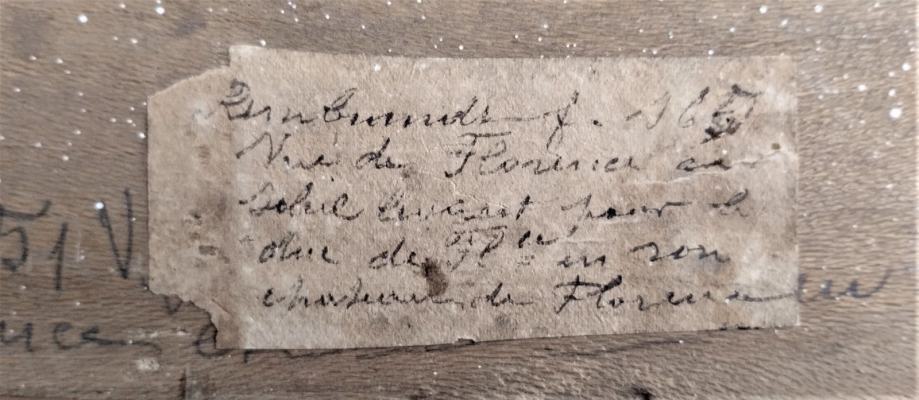 Rembrandt f. 1651
Vue de Florence au
Soleil levant pour le
duc de Fl ce en son
chateau de Florence
51 V